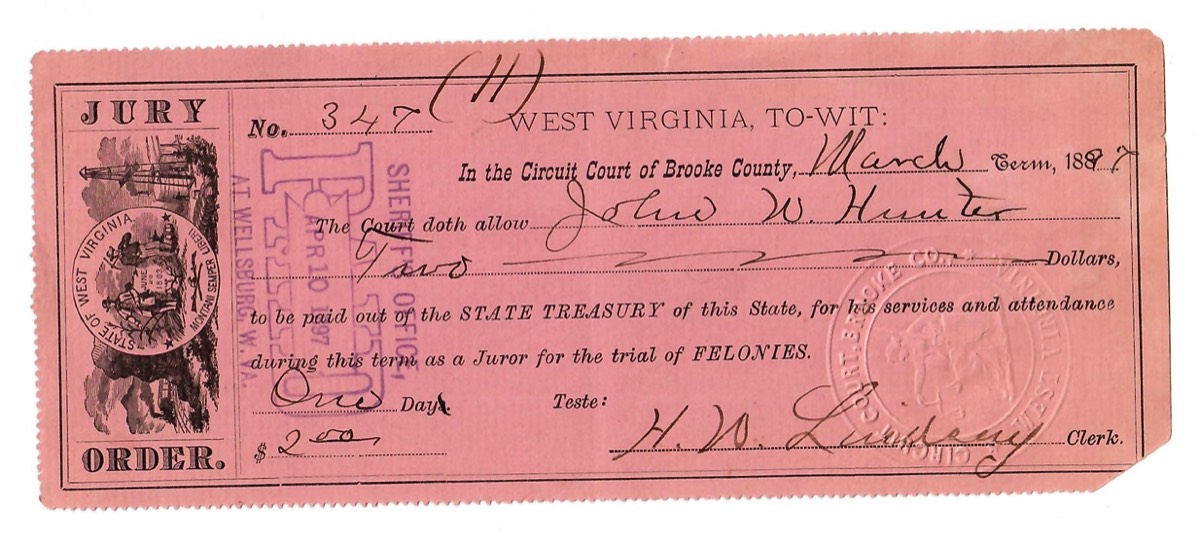 JURY
ORDER.
STATE OF WEST VIRGINIA
MONTANI SEMPER LIBERI
JUNE 20 1863
No. 347 (11)
WEST VIRGINIA, TO-WIT:
In the Circuit Court of Brooke County, March Term, 1897
The Court doth allow John W. Hunter
Two Dollars,
to be paid out of the STATE TREASURY of this State, for his services and attendance
during this term as a Juror for the trial of FELONIES.
One Day. Teste:
$2.00 H. W. Lindsey Clerk.
SHERIFF'S OFFICE,
PAID
APR 10 1897
AT WELLSBURG, W. VA.
CIRCUIT COURT. BROOKE CO.
WEST VIRGINIA